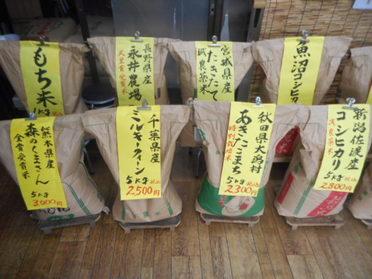 もち米
長野県産
永井農場
宮城県産
たきたて
減農薬米
魚沼
コシヒカリ
熊本県産
森のくまさん
金賞受賞米
5kg
千葉県産
ミルキークイーン
5kg 税込
2500円
秋田県大潟村
あきたこまち
特別栽培
5kg 税込
2300円
新潟佐渡産
コシヒカリ
減農薬米
5kg 税込
2800円